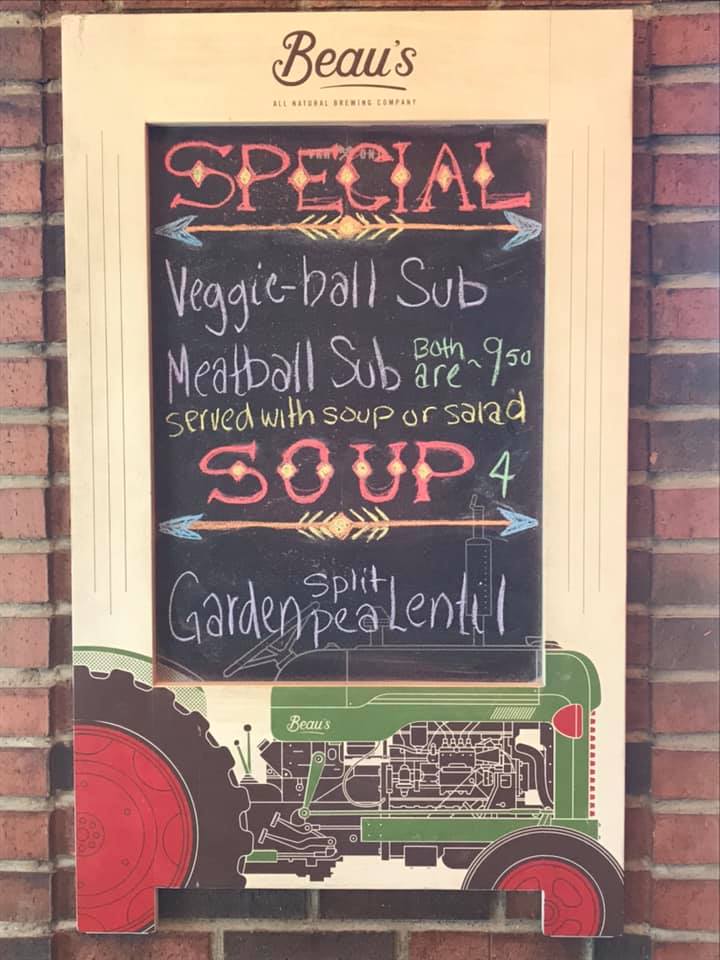 Beau's
ALL NATURAL BREWING COMPANY
SPECIAL
Veggie-ball Sub
Meatball Sub Both are ~ 950
served with soup or salad
SOUP 4
Garden split pea Lentil
Beau's